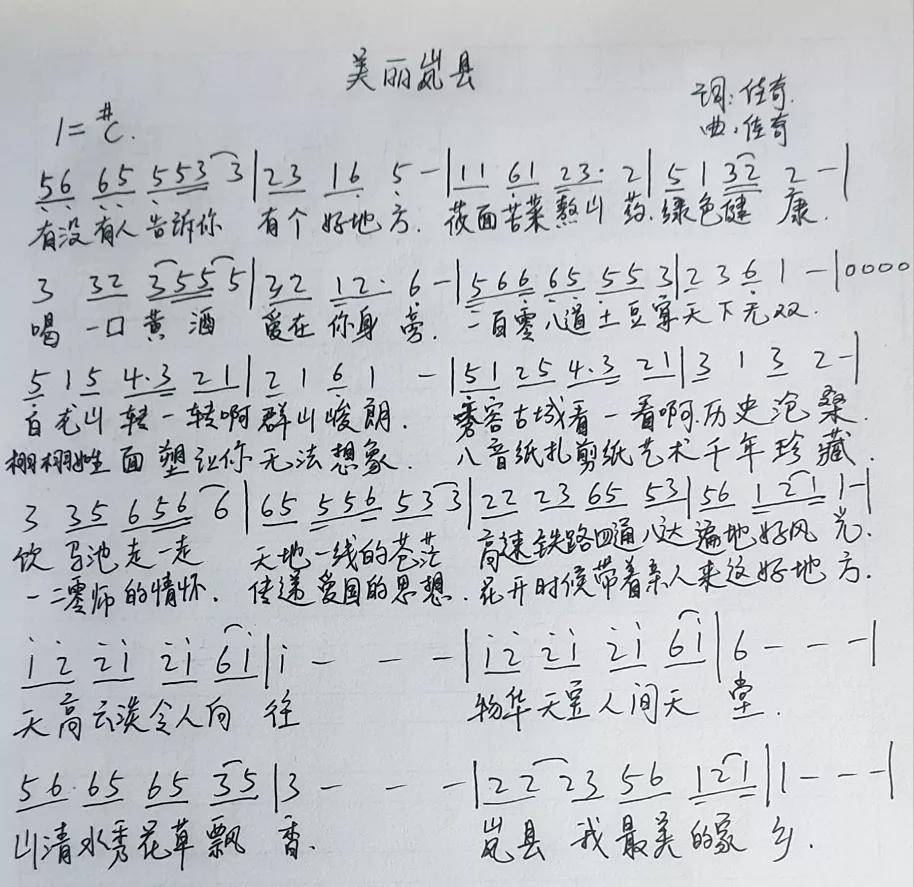 美丽岚县
1=#C.
词:佳奇.
曲:佳奇
56 65 553 3|23 16 5 -|11 61 23· 2|5 1 32 2 -|
有没有人告诉你 有个好地方. 莜面苦菜熬山药.绿色健康.
3 32 355 5|32 12· 6 -|566 65 55 3|2 3 6 1 -|0000
喝一口黄酒 爱在你身旁. 一百零八道土豆宴天下无双.
5 1 5 4·3 21|2 1 6 1 -|51 25 4·3 21|3 1 3 2 -|
白龙山转一转啊群山峻朗. 秀容古城看一看啊.历史沧桑.
栩栩如生面塑让你无法想象. 八音纸扎剪纸艺术千年珍藏.
3 35 656 6|65 556 53 3|22 23 65 53|56 1 21 1 -|
饮马池走一走 天地一线的苍茫 高速铁路四通八达遍地好风光.
一二零师的情怀. 传递爱国的思想. 花开时候带着亲人来这好地方.
i̇2̇ 2̇i̇ 2̇i̇ 6i̇|i̇ - - -|i̇2̇ 2̇i̇ 2̇i̇ 6i̇|6 - - -|
天高云淡令人向往 物华天宝人间天堂.
56· 65 65 35|3 - - -|22 23 56 121|1 - - -|
山清水秀花草飘香. 岚县我最美的家乡.